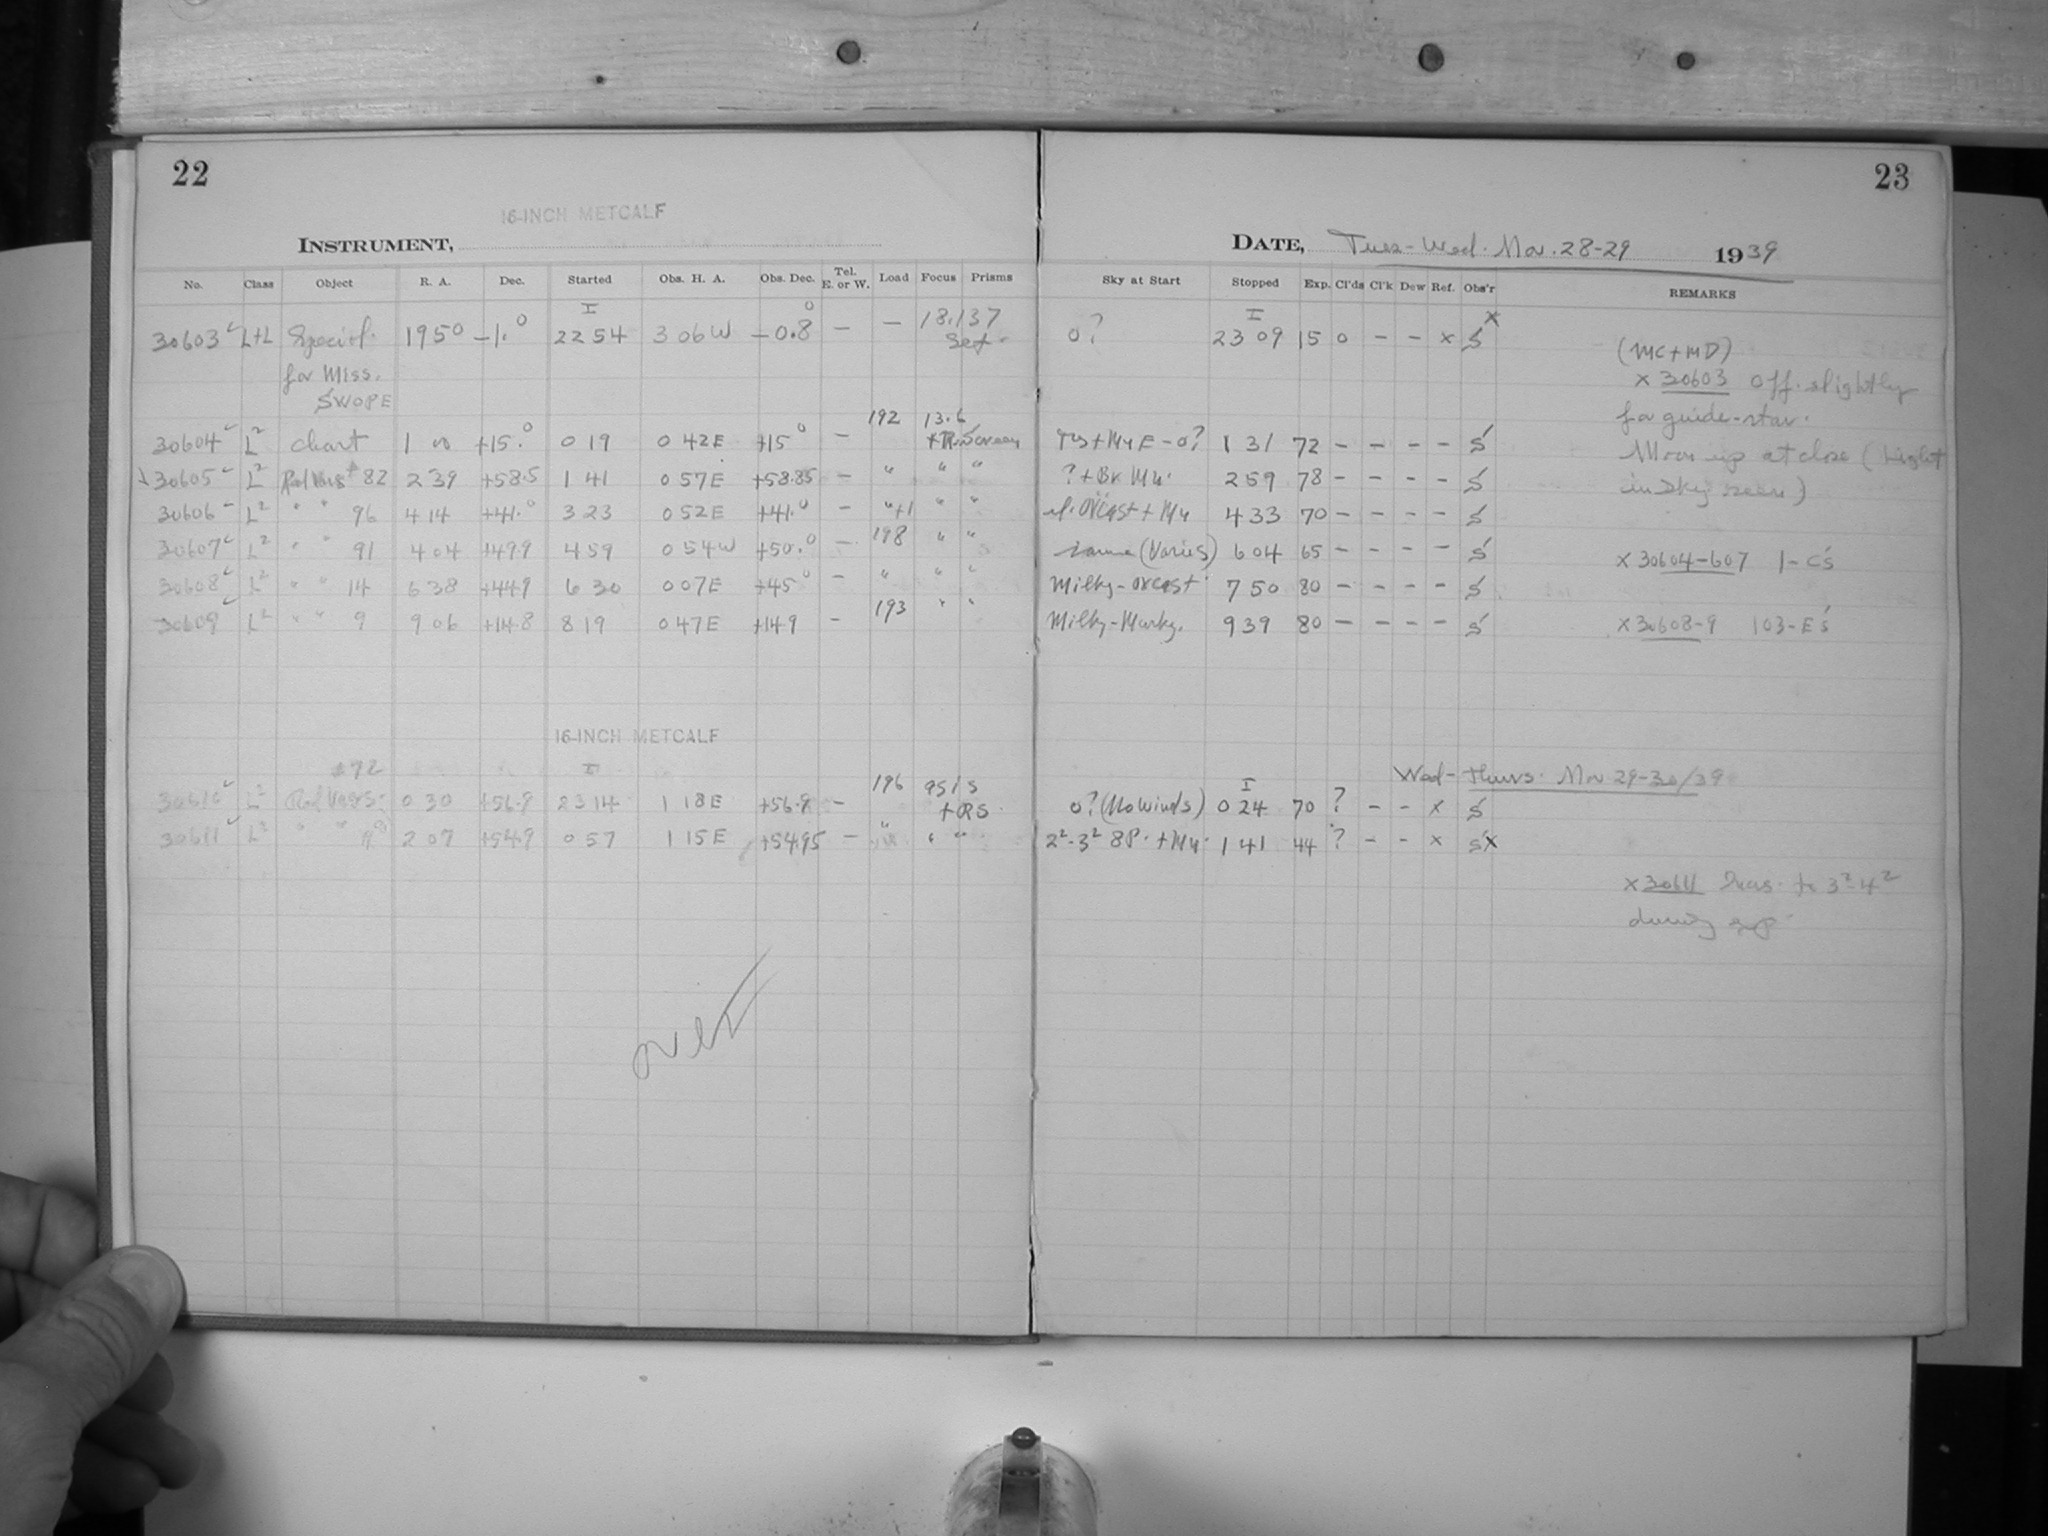 22
16-INCH METCALF
INSTRUMENT,
No. Class Object R. A. Dec. Started Obs. H. A. Obs. Dec. Tel. E. or W. Load Focus Prisms
30603 L+L Special 1950 -1.0 I 2254 3 06 W -0.8 - - 18.137 Set.
for Miss.
SWOPE
30604 L² Chart 1 00 +15.0 0 19 0 42E +15.0 - 192 13.6 + R. Screen
30605 L² Red Vars # 82 2 39 +58.5 1 41 0 57E +58.85 - " " "
30606 L² " " 96 4 14 +41.0 3 23 0 52E +41.0 - "+1 " "
30607 L² " " 91 4 04 +49.9 4 59 0 54W +50.0 - 198 " "
30608 L² " " 14 6 38 +44.9 6 30 0 07E +45.0 - " " "
30609 L² " " 9 9 06 +14.8 8 19 0 47E +14.9 - 193 " "
16-INCH METCALF
30610 L² Red Vars. #72 0 30 +56.9 I 23 14 1 18E +56.9 - 196 as is + RS
30611 L² " " 2 07 +54.9 0 57 1 15E +54.95 - " " "
23
DATE, Tues-Wed. Nov. 28-29 1939
Sky at Start Stopped Exp. Cl'ds Cl'k Dew Ref. Obs'r REMARKS
0? I 23 09 15 0 - - x S x
(MC+MD)
x 30603 Off slightly
for guide-star.
+ My E - 0? 1 31 72 - - - - S
Moon up at close (Light
? + Bk My. 2 59 78 - - - - S
in Sky seen)
Ovcast + My 4 33 70 - - - - S
same (Varies) 6 04 65 - - - - S
x 30604-607 1-C's
Milky-ovcast 7 50 80 - - - - S
Milky-Murky. 9 39 80 - - - - S
x 30608-9 103-E's
Wed-Thurs. Nov 29-30/39
0? (No Winds) I 0 24 70 ? - - x S
2²-3² SP. + My. 1 41 44 ? - - x S x
x 30611 to 3²-4²
during exp.